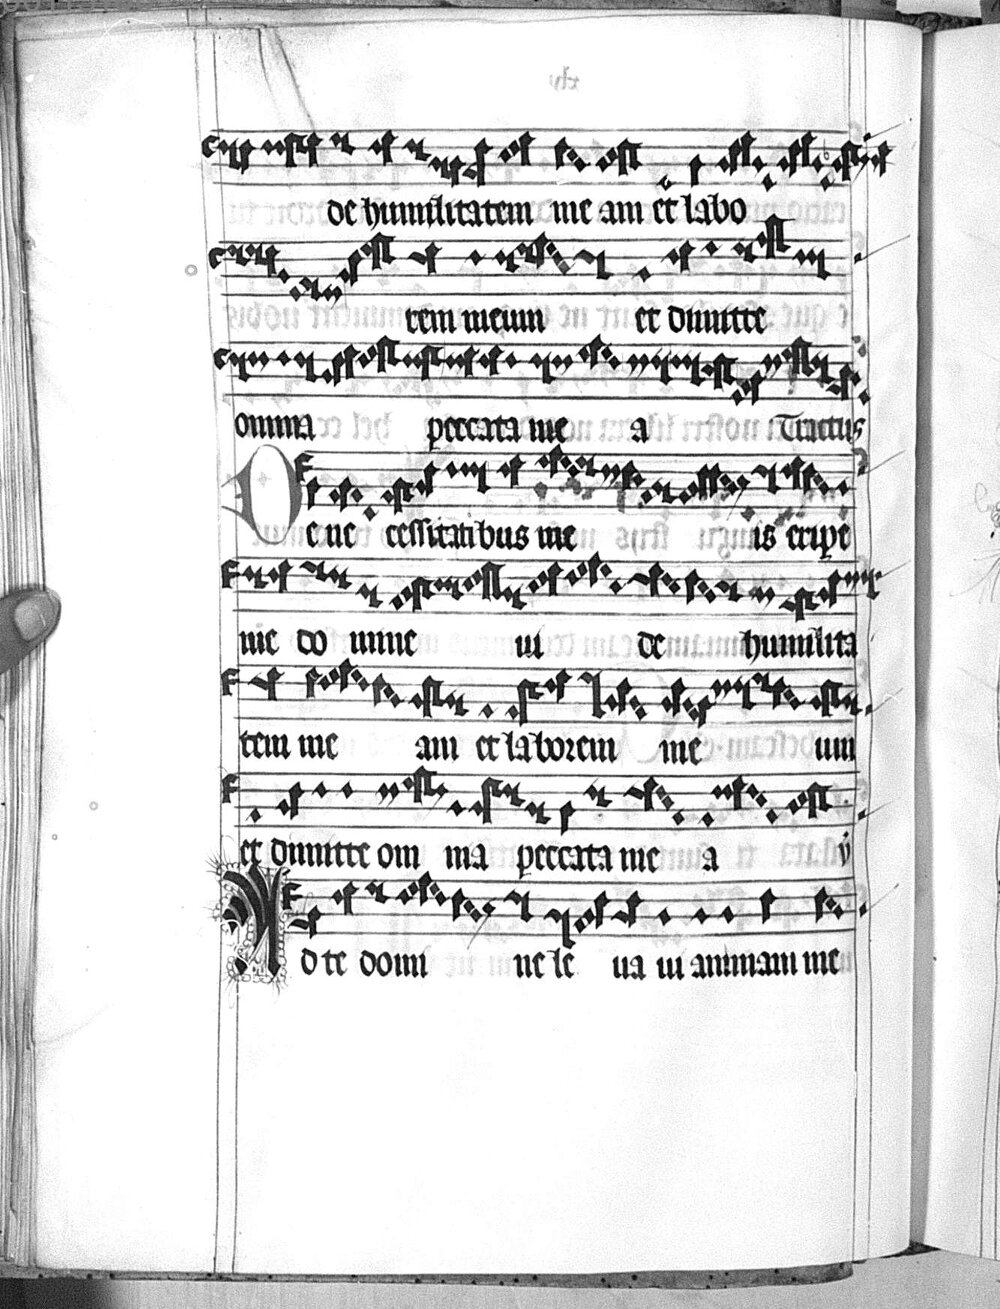 de humilitatem me am et labo
rem meum et dimitte
omnia peccata me a Tractus
De ne cessitatibus me is eripe
me do mine ui de humilita
tem me am et laborem me um
et dimitte om nia peccata me a ṽ
Ad te domi ne le ua ui animam me